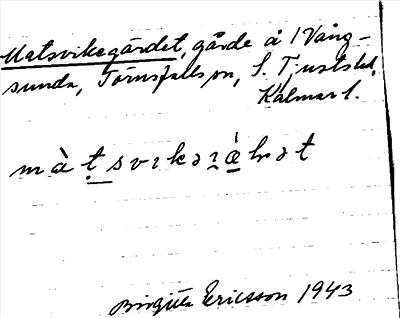 Matsvikegärdet, gärde å 1 Vång-
sunda, Törnsfalls sn, S. Tjusts hd,
Kalmar l.
màt̤svɪkəɪ̯æ̀hət
Birgitta Ericsson 1943